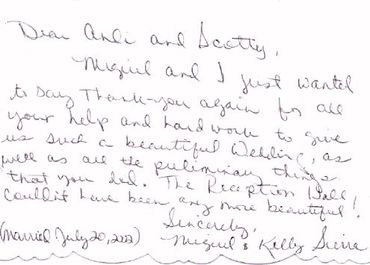 Dear Andi and Scotty,
Miguel and I just wanted
to say Thank-you again for all
your help and hard work to give
us such a beautiful Wedding, as
well as all the preliminary things
that you did. The Reception Hall!
Couldn't have been any more beautiful.
Sincerely,
(Married July 20, 2002) Miguel & Kelly